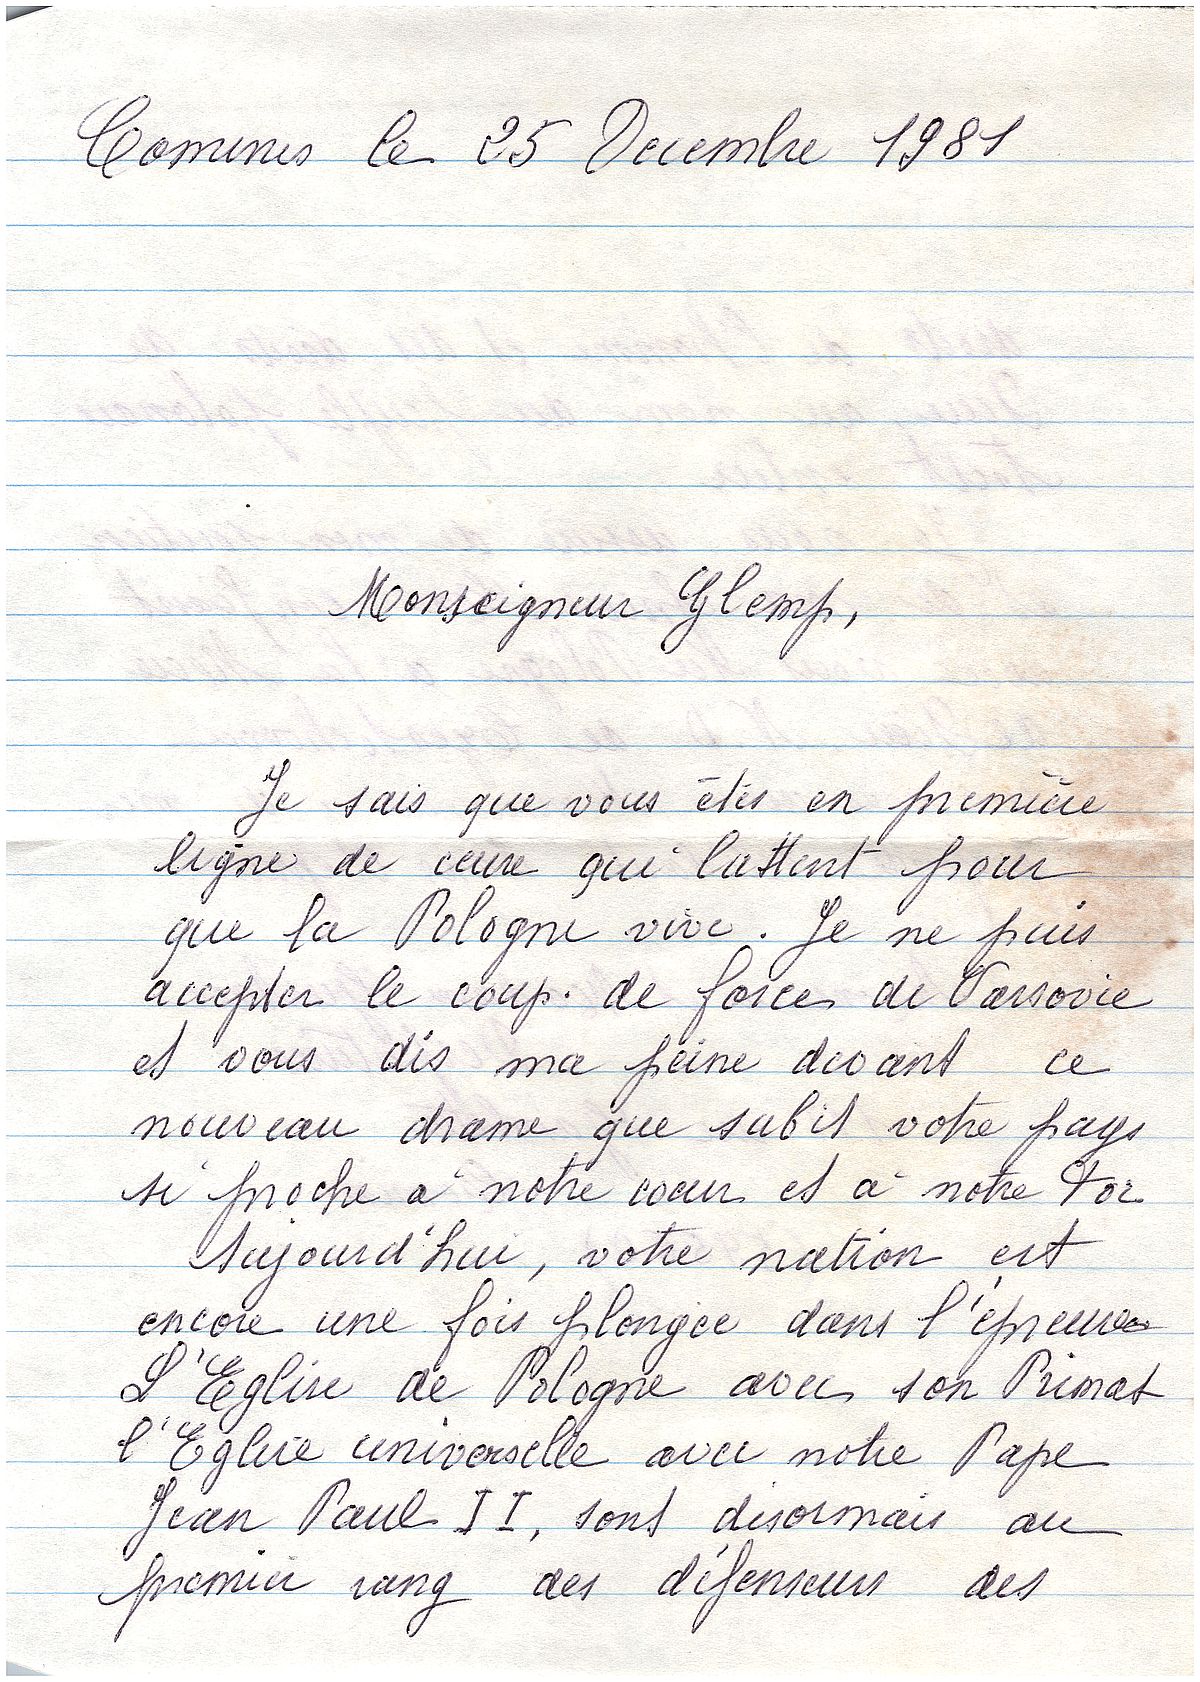 Comines le 25 Decembre 1981
Monseigneur Glemp,
Je sais que vous êtes en première
ligne de ceux qui luttent pour
que la Pologne vive. Je ne puis
accepter le coup. de force de Varsovie
et vous dis ma peine devant ce
nouveau drame que subit votre pays
si proche à notre coeur et à notre Foi
Aujourd'hui, votre nation est
encore une fois plongée dans l'épreuve
L'Eglise de Pologne avec son Primat
l'Eglise universelle avec notre Pape
Jean Paul II, sont désormais au
premier rang des défenseurs des